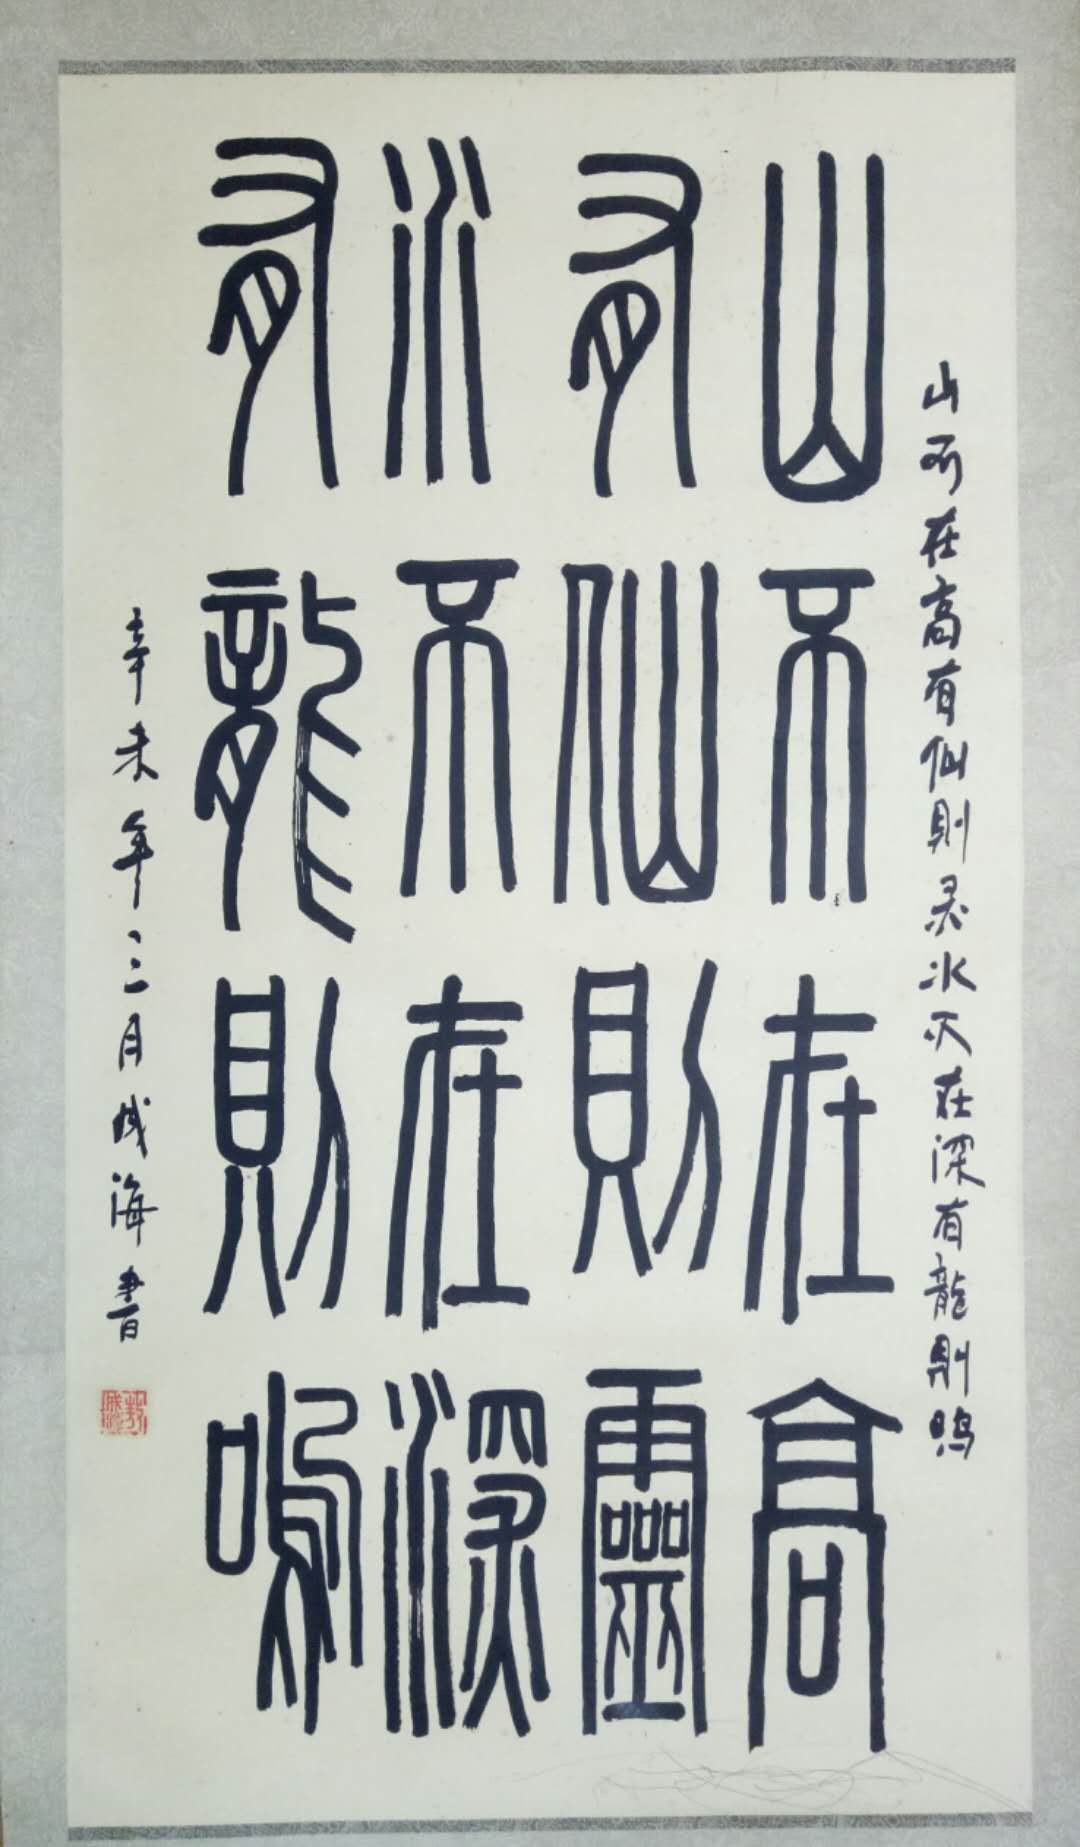 山不在高有仙則灵水不在深有龍則鸣
山不在高
有仙則靈
水不在深
有龍則鳴
辛未年三月城海書